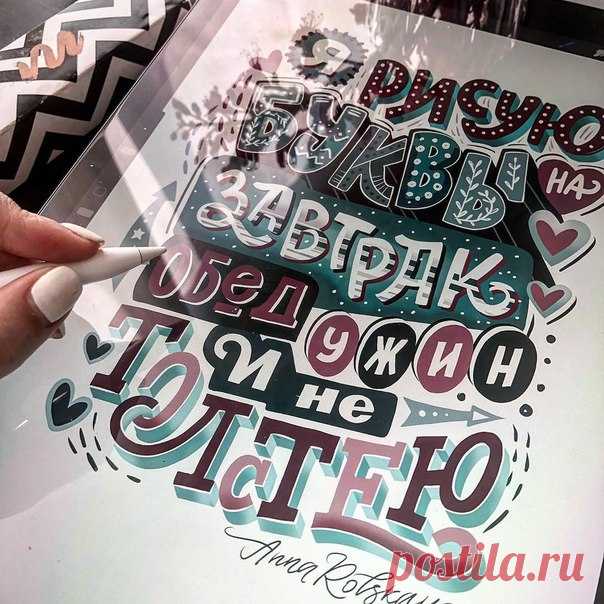 Я РИСУЮ
БУКВЫ НА
ЗАВТРАК
ОБЕД УЖИН
И не
ТОЛСТЕЮ
Anna
postila.ru